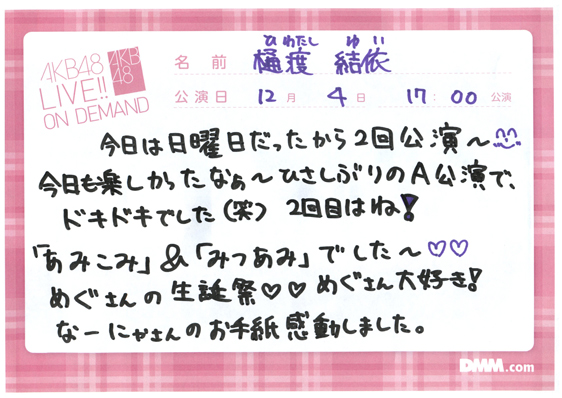 AKB48
LIVE!!
ON DEMAND
AKB
48
ひわたし ゆい
名前 樋渡 結依
公演日 12月 4日 17:00公演
今日は日曜日だったから2回公演〜
今日も楽しかったなぁ〜ひさしぶりのA公演で、
ドキドキでした(笑) 2回目はね!
「あみこみ」&「みつあみ」でした〜♡♡
めぐさんの生誕祭♡♡めぐさん大好き!
なーにゃさんのお手紙感動しました。
DMM.com